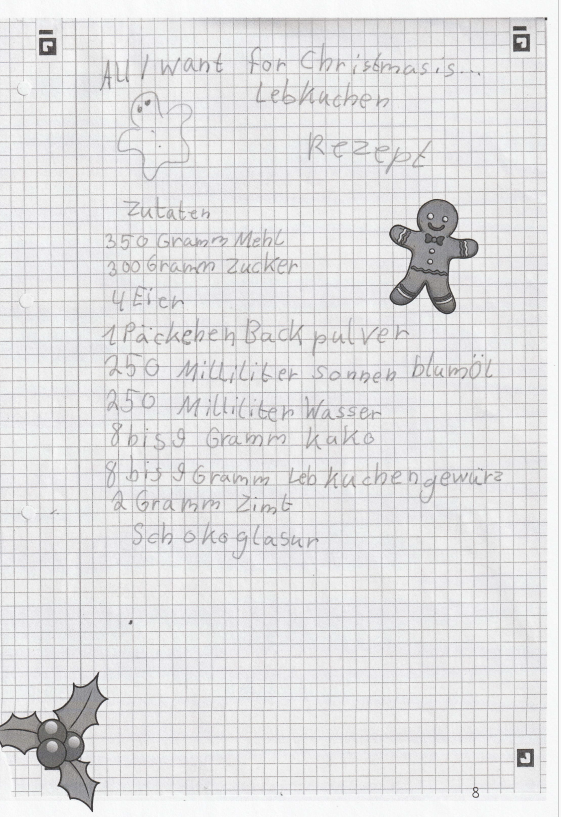 All I want for Christmas is...
Lebkuchen
Rezept
Zutaten
350 Gramm Mehl
300 Gramm Zucker
4 Eier
1 Päckchen Back pulver
250 Milliliter sonnen blumöl
250 Milliliter Wasser
8 bis 9 Gramm kako
8 bis 9 Gramm Leb kuchen gewürz
2 Gramm Zimt
Schokoglasur
8